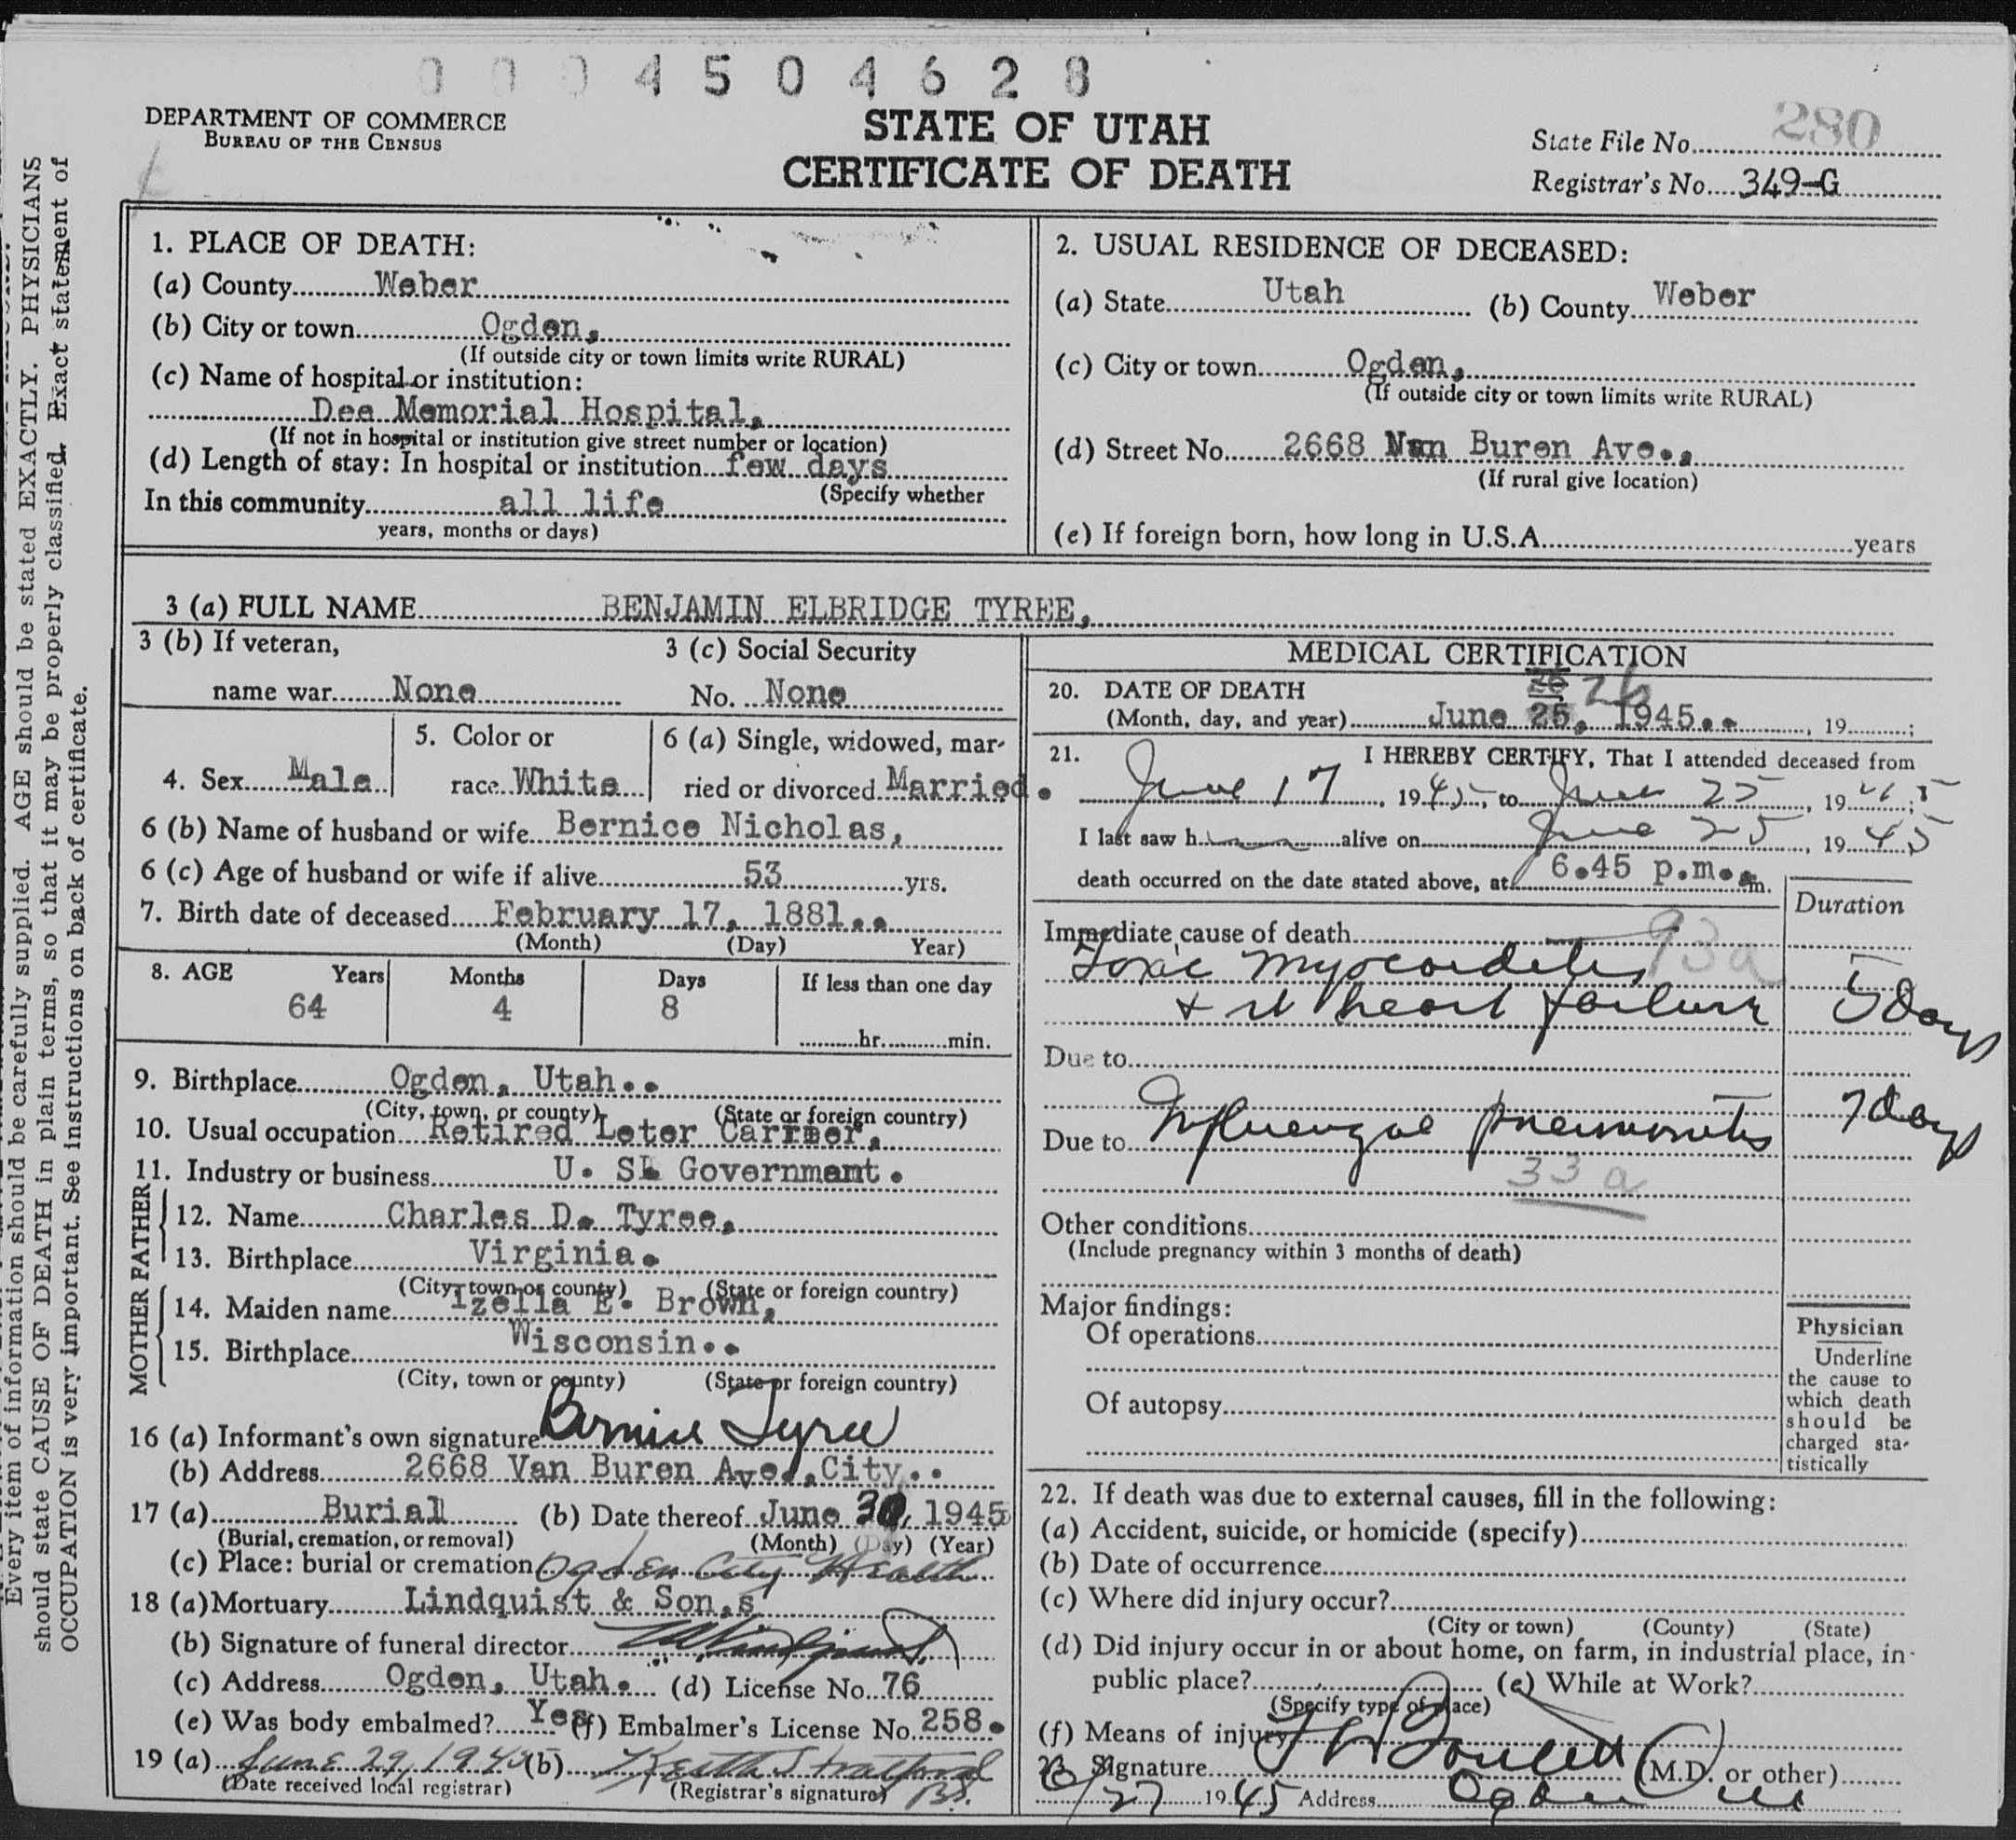 0 0 0 4 5 0 4 6 2 8
DEPARTMENT OF COMMERCE
BUREAU OF THE CENSUS
STATE OF UTAH
CERTIFICATE OF DEATH
State File No. 280
Registrar's No. 349-G
Every item of information should be carefully supplied. AGE should be stated EXACTLY. PHYSICIANS
should state CAUSE OF DEATH in plain terms, so that it may be properly classified. Exact statement of
OCCUPATION is very important. See instructions on back of certificate.
1. PLACE OF DEATH:
(a) County Weber
(b) City or town Ogden,
(If outside city or town limits write RURAL)
(c) Name of hospital or institution:
Dee Memorial Hospital,
(If not in hospital or institution give street number or location)
(d) Length of stay: In hospital or institution few days
(Specify whether
In this community all life
years, months or days)
2. USUAL RESIDENCE OF DECEASED:
(a) State Utah (b) County Weber
(c) City or town Ogden,
(If outside city or town limits write RURAL)
(d) Street No. 2668 Van Buren Ave.,
(If rural give location)
(e) If foreign born, how long in U.S.A. years
3 (a) FULL NAME BENJAMIN ELBRIDGE TYREE,
3 (b) If veteran,
name war None
3 (c) Social Security
No. None
4. Sex Male
5. Color or
race White
6 (a) Single, widowed, mar-
ried or divorced Married.
6 (b) Name of husband or wife Bernice Nicholas,
6 (c) Age of husband or wife if alive 53 yrs.
7. Birth date of deceased February 17, 1881..
(Month) (Day) Year)
8. AGE Years Months Days If less than one day
64 4 8 hr. min.
9. Birthplace Ogden, Utah..
(City, town, or county) (State or foreign country)
10. Usual occupation Retired Leter Carrier,
11. Industry or business U. S. Government.
FATHER
12. Name Charles D. Tyree,
13. Birthplace Virginia.
(City, town or county) (State or foreign country)
MOTHER
14. Maiden name Izella E. Brown,
15. Birthplace Wisconsin..
(City, town or county) (State or foreign country)
16 (a) Informant's own signature Bernice Tyree
(b) Address 2668 Van Buren Ave.,City..
17 (a) Burial (b) Date thereof June 30, 1945
(Burial, cremation, or removal) (Month) (Day) (Year)
(c) Place: burial or cremation Ogden City
18 (a) Mortuary Lindquist & Son,s
(b) Signature of funeral director
(c) Address Ogden, Utah. (d) License No. 76
(e) Was body embalmed? Yes (f) Embalmer's License No. 258.
19 (a) June 29, 1945 (b) Keith Stratford
(Date received local registrar) (Registrar's signature) BS.
MEDICAL CERTIFICATION
20. DATE OF DEATH 26
(Month, day, and year) June 25, 1945.. , 19 ;
21. I HEREBY CERTIFY, That I attended deceased from
June 17, 1945, to June 25, 1945;
I last saw him alive on June 25, 1945
death occurred on the date stated above, at 6.45 p.m. m.
Duration
Immediate cause of death 93a
Toxic myocarditis
+ rt heart failure 5 days
Due to
Due to Influenzae pneumonitis 7 days
33 a
Other conditions
(Include pregnancy within 3 months of death)
Major findings:
Of operations
Of autopsy
Physician
Underline
the cause to
which death
should be
charged sta-
tistically
22. If death was due to external causes, fill in the following:
(a) Accident, suicide, or homicide (specify)
(b) Date of occurrence
(c) Where did injury occur?
(City or town) (County) (State)
(d) Did injury occur in or about home, on farm, in industrial place, in
public place? (e) While at Work?
(Specify type of place)
(f) Means of injury
23. Signature (M.D. or other)
6/27 1945 Address Ogden